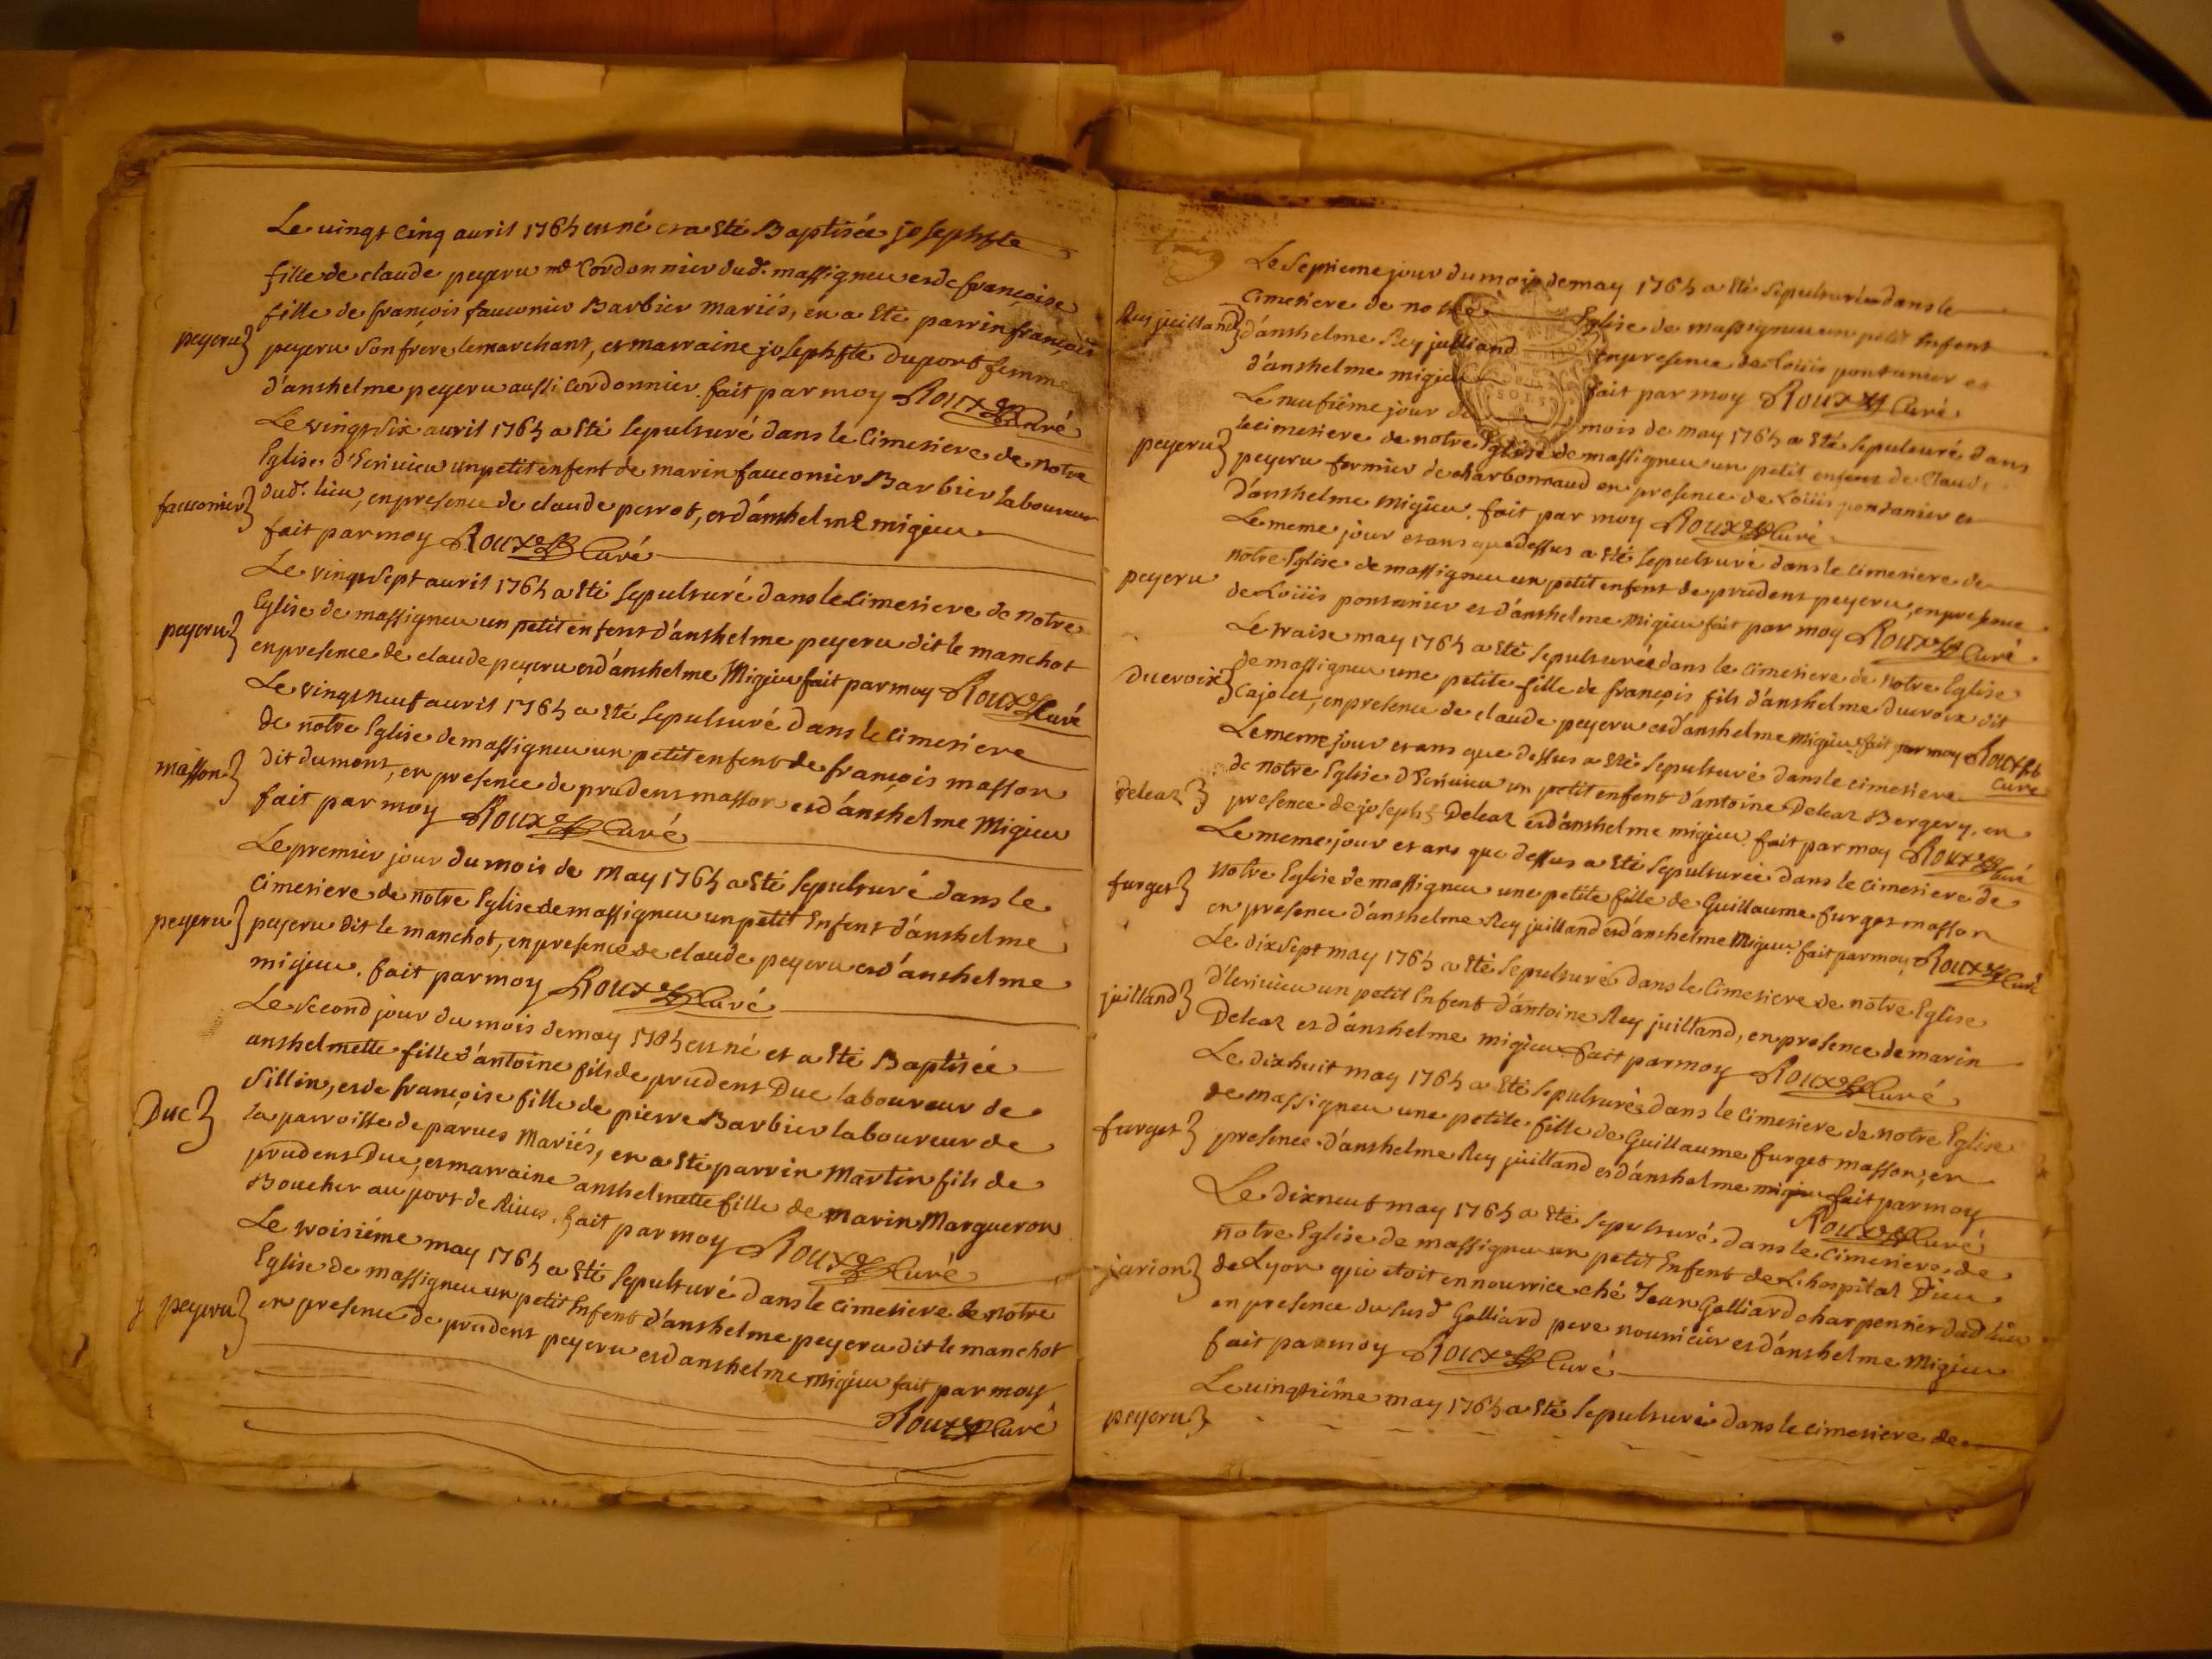 Le vingt cinq avril 1764 est né et a été Baptisée josephfte
fille de claude peyeru md Cordonnier dud. massigneu et de françoise
fille de françois fauconier Barbier mariés, en a été parrin françois
peyeru
peyeru son frère le marchant, et marraine josephfte Duport femme
d'anthelme peyeru aussi cordonnier. fait par moy Roux Curé
Le vingt six avril 1764 a été sepulturé dans le Cimetiere de notre
Eglise d'Ecrivieu un petit enfent de marin fauconier Barbier laboureur
fauconier
dud. lieu, en presence de claude perrot, et d'anthelme migieu
fait par moy Roux Curé
Le vingt sept avril 1764 a été sepulturé dans le Cimetiere de notre
Eglise de massigneu un petit enfent d'anthelme peyeru dit le manchot
peyeru
en presence de claude peyeru et d'anthelme Migieu fait par moy Roux Curé
Le vingt neuf avril 1764 a été sepulturé dans le Cimetiere
de notre Eglise de massigneu un petit enfent de françois masson
masson
dit dumont, en presence de prudent masson et d'anthelme Migieu
fait par moy Roux Curé
Le premier jour du mois de May 1764 a été sepulturé dans le
Cimetiere de notre Eglise de massigneu un petit Enfent d'anthelme
peyeru
peyeru dit le manchot, en presence de claude peyeru et d'anthelme
migieu. fait par moy Roux Curé
Le second jour du mois de may 1764 est né et a été Baptisée
anthelmette fille d'antoine fils de prudent Duc laboureur de
Sillin, et de françoise fille de pierre Barbier laboureur de
Duc
la parroisse de parves Mariés, en a été parrin Martin fils de
prudent Duc, et marraine anthelmette fille de marin Margueron
Boucher au port de Rives. fait par moy Roux Curé
Le troisième may 1764 a été sepulturé dans le cimetiere de notre
Eglise de massigneu un petit Enfent d'anthelme peyeru dit le manchot
peyeru
en presence de prudent peyeru et d'anthelme migieu fait par moy
Roux Curé
Le septieme jour du mois de may 1764 a été sepulturé dans le
cimetiere de notre Eglise de massigneu un petit Enfent
Rey juilland
d'anthelme Rey juilland en presence de Loüis pontanier et
d'anthelme migieu fait par moy Roux Curé
Le neufième jour du mois de may 1764 a été sepulturé dans
le cimetiere de notre Eglise de massigneu un petit enfent de Claude
peyeru
peyeru fermier de charbonnaud en presence de Loüis pontanier et
d'anthelme Migieu. fait par moy Roux Curé
Le meme jour et ans que dessus a été sepulturé dans le cimetiere de
notre Eglise de massigneu un petit enfent de prudent peyeru, en presence
peyeru
de Loüis pontanier et d'anthelme Migieu fait par moy Roux Curé
Le traise may 1764 a été sepulturée dans le cimetiere de notre Eglise
de massigneu une petite fille de françois fils d'anthelme ducroix dit
Ducroix
Cajolet, en presence de claude peyeru et d'anthelme migieu. fait par moy Roux
Curé
Le meme jour et ans que dessus a été sepulturé dans le cimetiere
de notre Eglise d'Ecrivieu un petit enfent d'antoine Delcaz Bergery, en
Delcaz
presence de joseph Delcaz et d'anthelme migieu. fait par moy Roux Curé
Le meme jour et ans que dessus a été sepulturée dans le cimetiere de
notre Eglise de massigneu une petite fille de Guillaume furget masson
furget
en presence d'anthelme Rey juilland et d'anthelme Migieu. fait par moy Roux Curé
Le dix sept may 1764 a été sepulturé dans le Cimetiere de notre Eglise
d'Ecrivieu un petit Enfent d'antoine Rey juilland, en presence de marin
juilland
Delcaz et d'anthelme migieu. fait par moy Roux Curé
Le dixhuit may 1764 a été sepulturée dans le cimetiere de notre Eglise
de massigneu une petite fille de Guillaume furget masson, en
furget
presence d'anthelme Rey juilland et d'anthelme migieu fait par moy
Roux Curé
Le dixneuf may 1764 a été sepulturé dans le cimetiere de
notre Eglise de massigneu un petit Enfent de L'hospital Dieu
jarion
de Lyon qui etoit en nourrice ché Jean Galliard charpentier dud. lieu
en presence du susd. Galliard pere nourricier et d'anthelme Migieu
fait par moy Roux Curé
Le vingtième may 1764 a été sepulturé dans le cimetiere de
peyeru